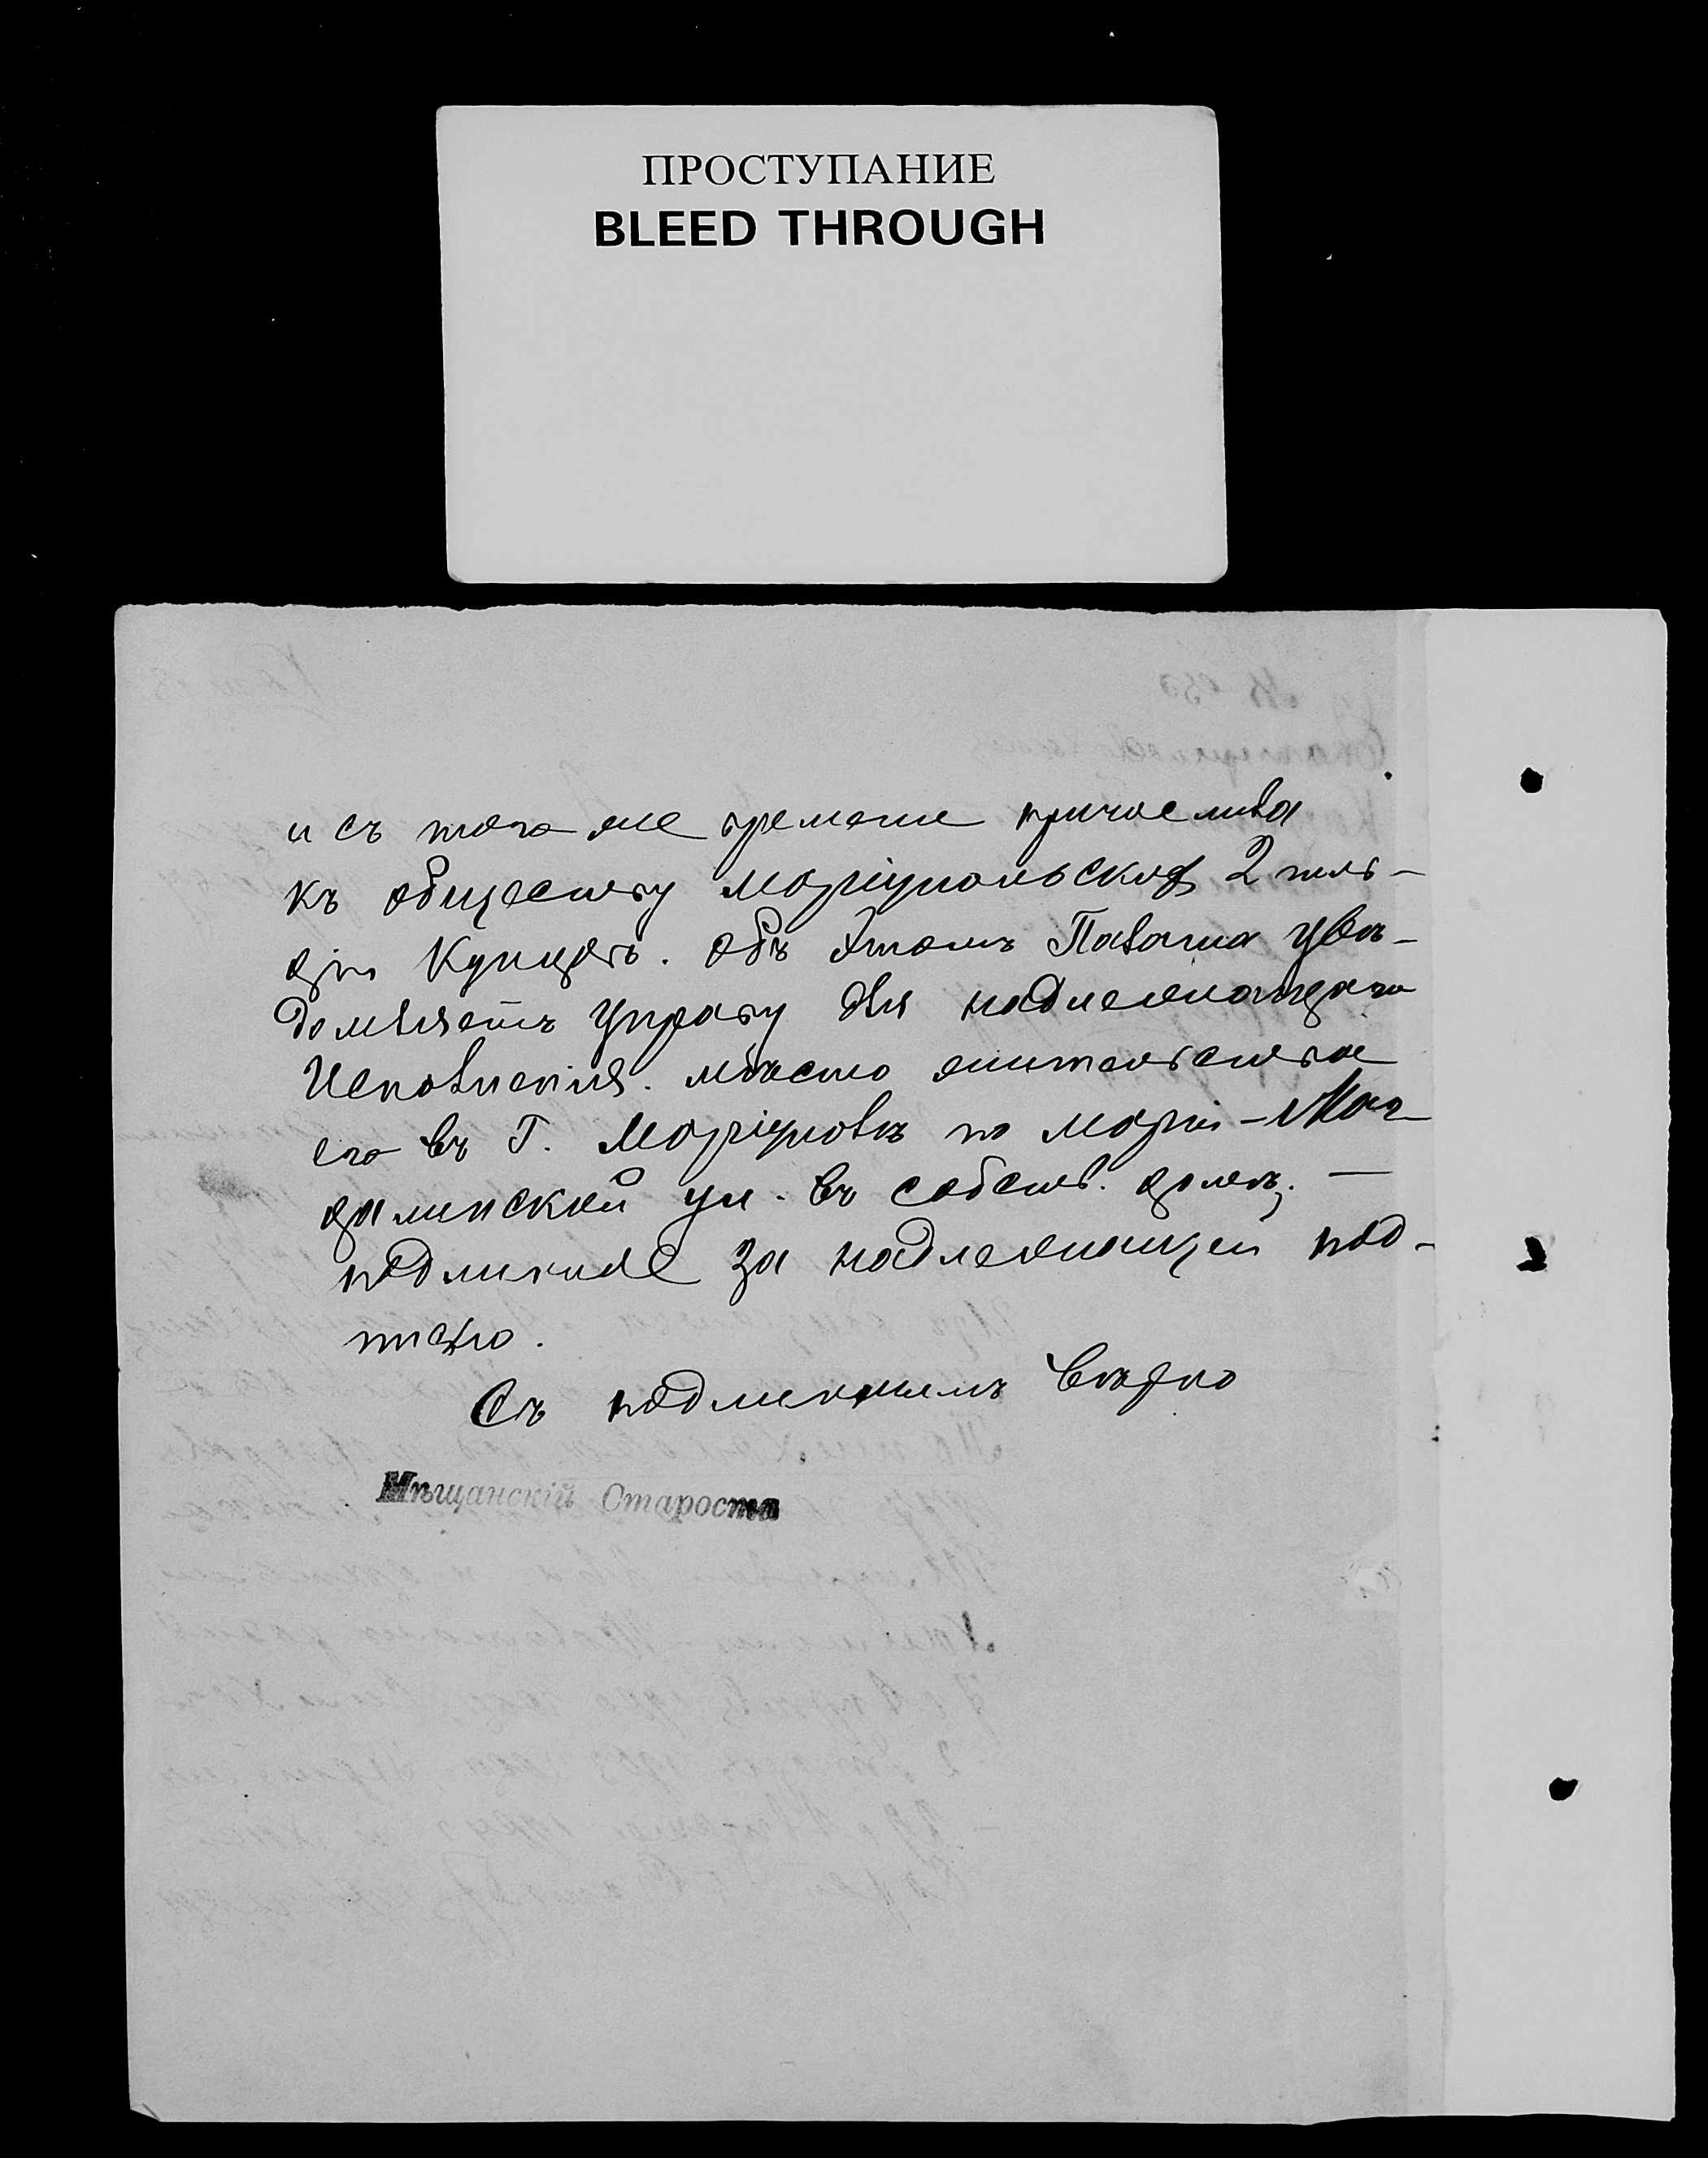 ПРОСТУПАНИЕ
BLEED THROUGH
и съ того же времени причислена
къ обществу Маріупольскихъ 2 гиль-
діи Купцовъ. Объ Этомъ Палата увѣ-
домляетъ Управу для надлежащаго
Исполненія. мѣсто жительства
его въ Г. Маріуполѣ по Маріи-Маг
далинской ул. въ собств. домѣ. —
подлинное за надлежащей под-
писью.
Съ подлиннымъ Вѣрно
Мѣщанскій Староста